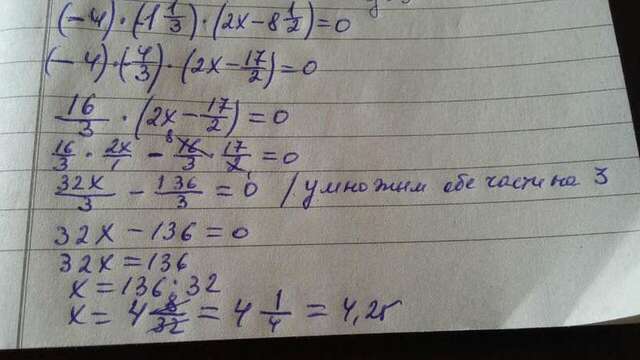 (-4)·(-1 1/3)·(2x-8 1/2)=0
(-4)·(-4/3)·(2x-17/2)=0
16/3·(2x-17/2)=0
16/3·2x/1-16/3·17/2=0
32x/3-136/3=0 / умножим обе части на 3
32x-136=0
32x=136
x=136:32
x=4 8/32=4 1/4=4,25